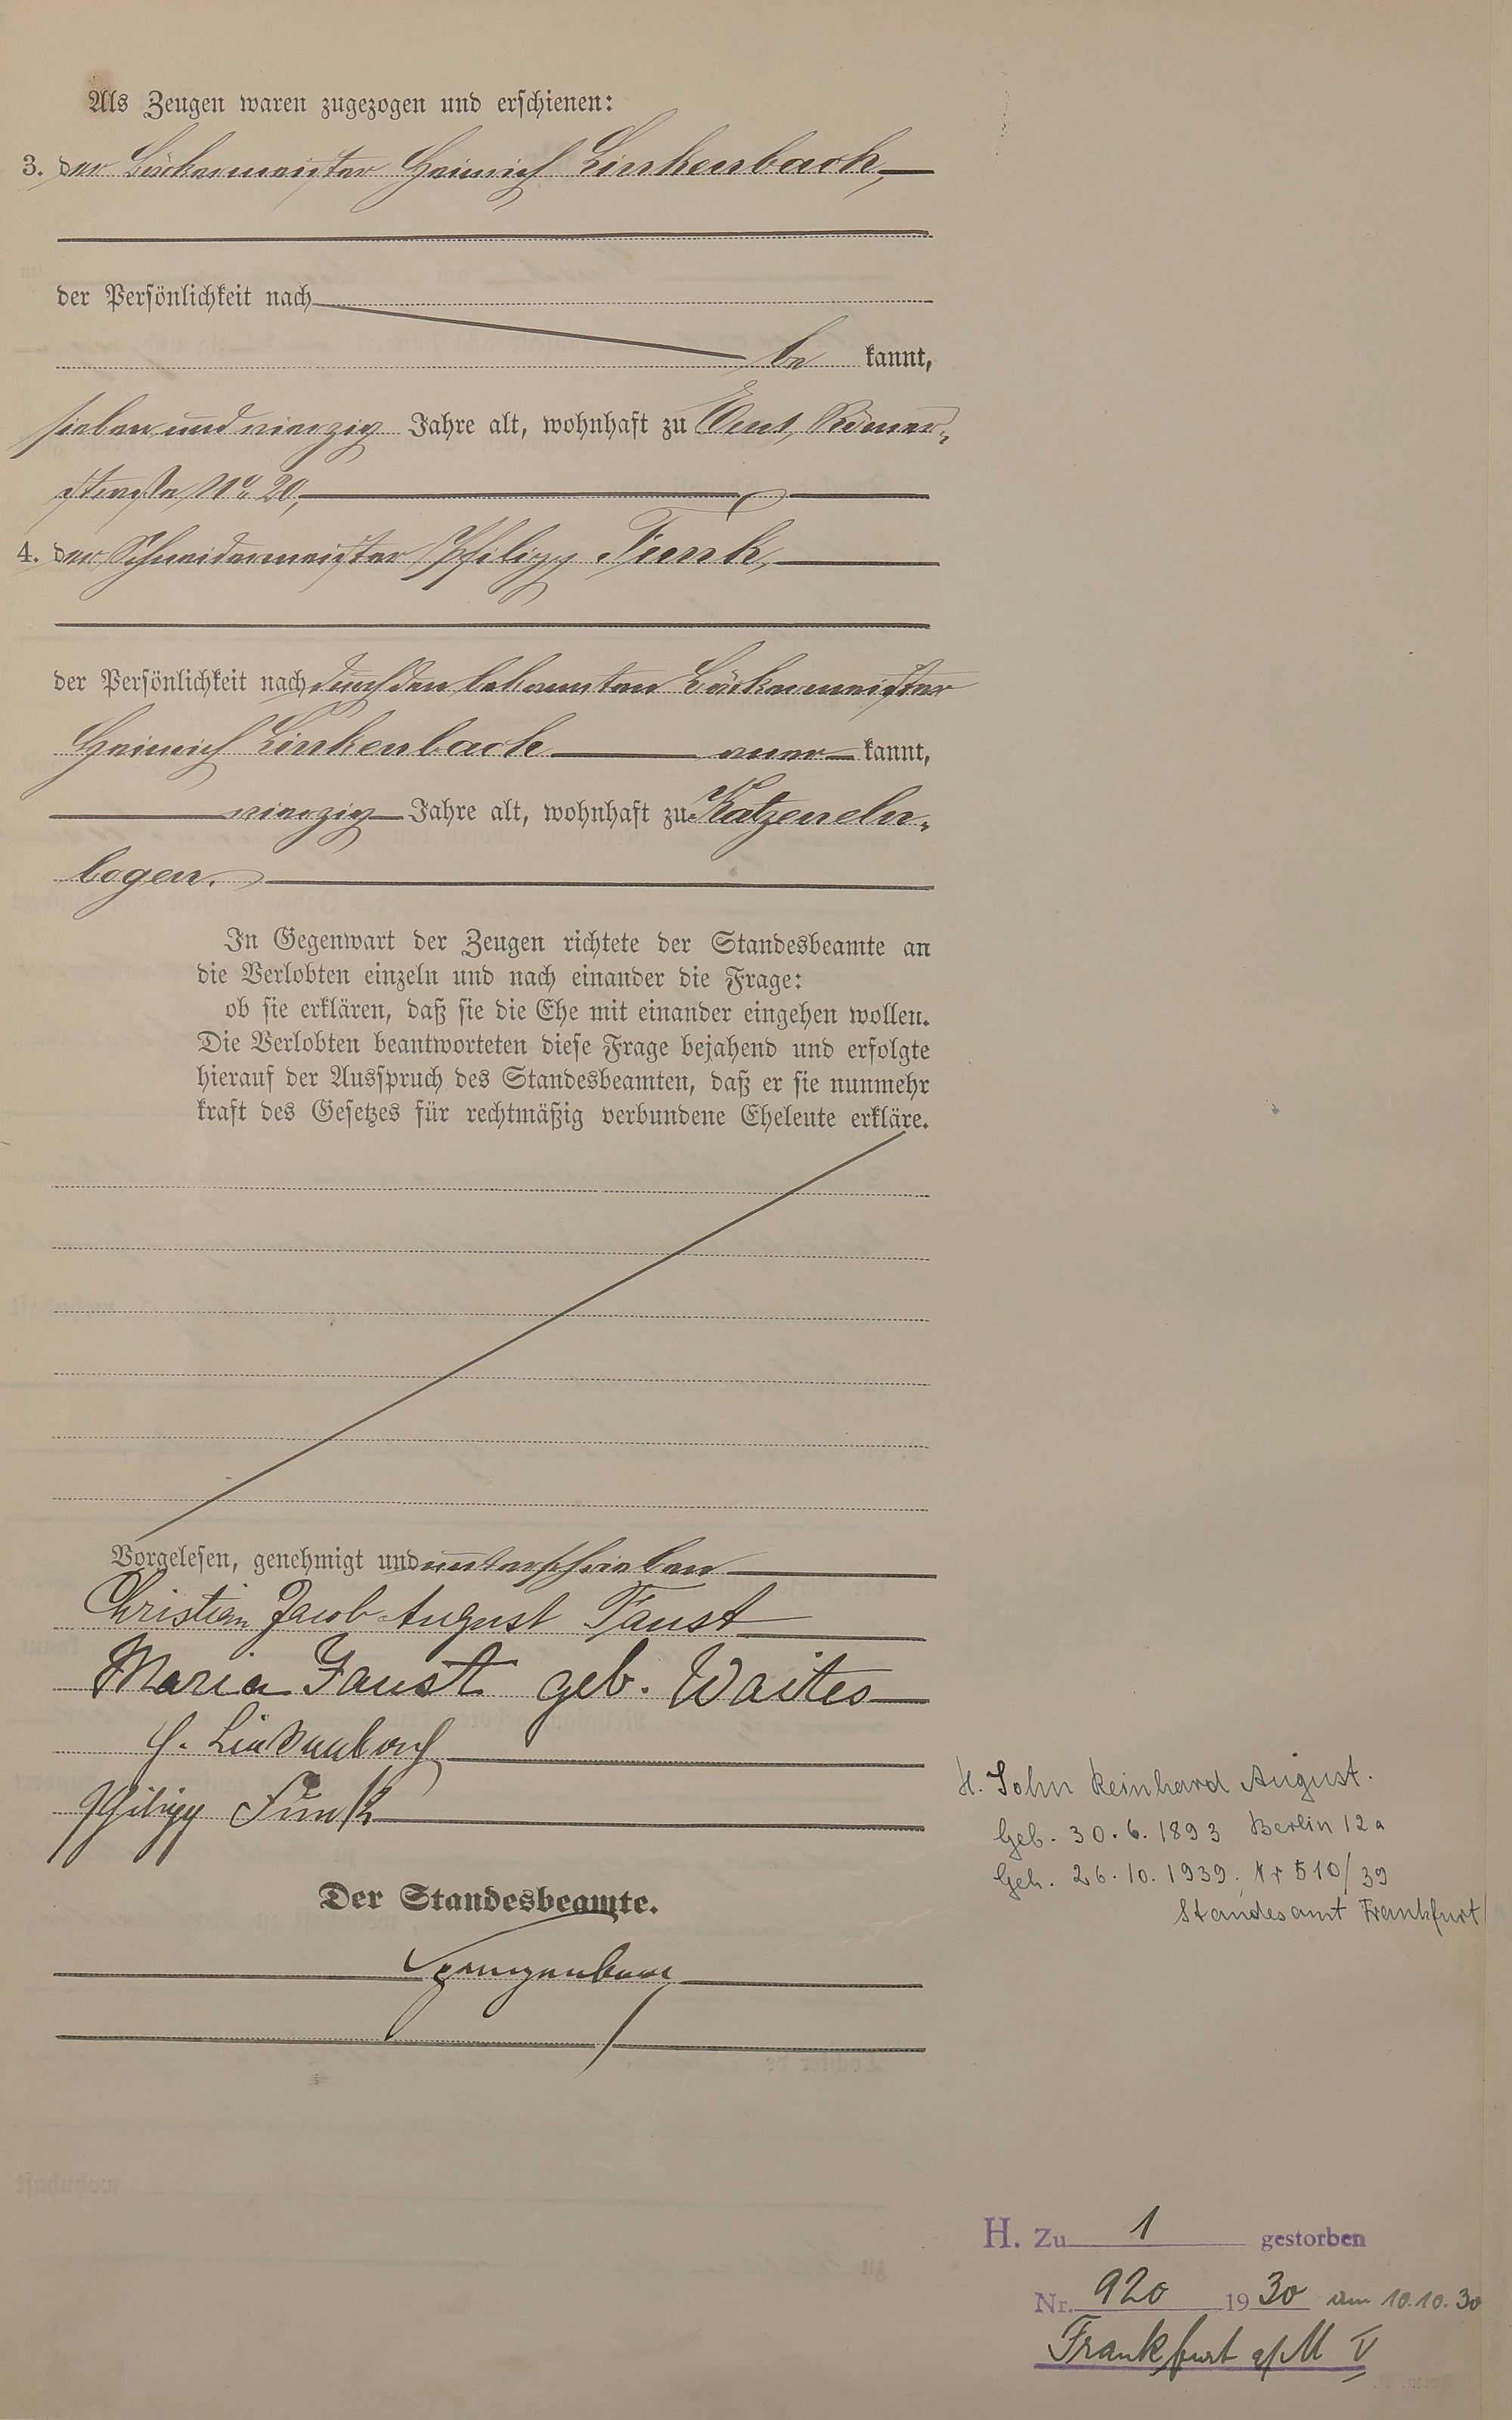 Als Zeugen waren zugezogen und erschienen:
3. der Bäckermeister Heinrich Linkenbach,
der Persönlichkeit nach
be kannt,
sieben und vierzig Jahre alt, wohnhaft zu Ems, Römer-
straße No 20,
4. der Schneidermeister Philipp Funk,
der Persönlichkeit nach durch den bekannten Bäckermeister
Heinrich Linkenbach aner kannt,
vierzig Jahre alt, wohnhaft zu Katzeneln-
bogen.
In Gegenwart der Zeugen richtete der Standesbeamte an
die Verlobten einzeln und nach einander die Frage:
ob sie erklären, daß sie die Ehe mit einander eingehen wollen.
Die Verlobten beantworteten diese Frage bejahend und erfolgte
hierauf der Ausspruch des Standesbeamten, daß er sie nunmehr
kraft des Gesetzes für rechtmäßig verbundene Eheleute erkläre.
Vorgelesen, genehmigt und unterschrieben
Christian Jacob August Faust
Maria Faust geb. Waites
H. Linkenbach
Philipp Funk
Der Standesbeamte.
Spangenberg
H. Sohn Reinhard August.
Geb. 30.6.1893 Berlin 12a
Geh. 26.10.1939. Nr 510/39
Standesamt Frankfurt
H. Zu 1 gestorben
Nr. 920 1930 am 10.10.30
Frankfurt a/M V